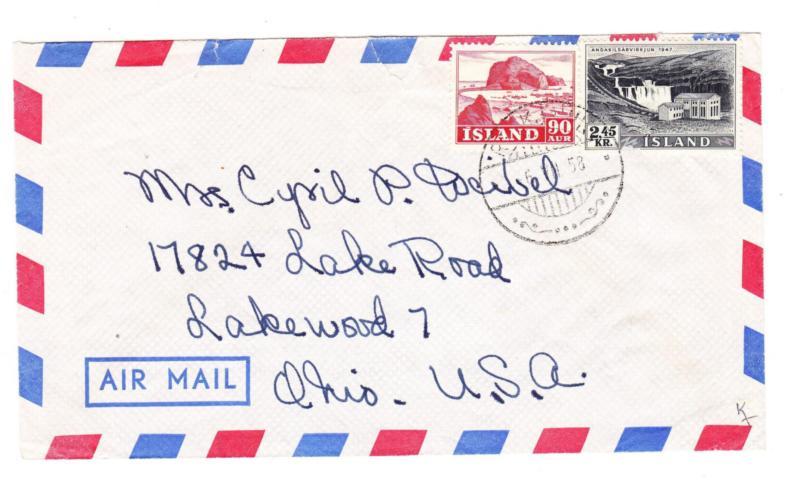 ANDAKILSÁRVIRKJUN 1947
ÍSLAND 90 AUR
2,45 KR. ÍSLAND
58
Mrs. Cyril P.
17824 Lake Road
Lakewood 7
Ohio - U.S.A.
AIR MAIL
K